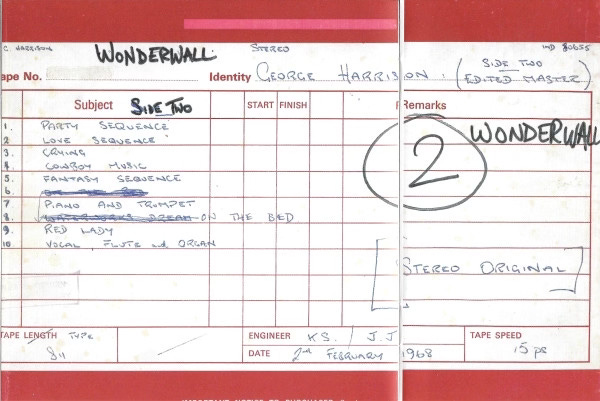 C. HARRISON
WONDERWALL
STEREO
IND 80655
ape No.
Identity GEORGE HARRISON : (SIDE TWO
EDITED MASTER)
Subject SIDE TWO START FINISH Remarks
1. PARTY SEQUENCE
2. LOVE SEQUENCE
3. CRYING
4. COWBOY MUSIC
5. FANTASY SEQUENCE
6.
7 PIANO AND TRUMPET
8. WATERWORKS DREAM ON THE BED
9. RED LADY
10 VOCAL, FLUTE and ORGAN
2
WONDERWALL
STEREO ORIGINAL
TAPE LENGTH TYPE
811
ENGINEER KS / J.J
DATE 2nd FEBRUARY 1968
TAPE SPEED
15 ps